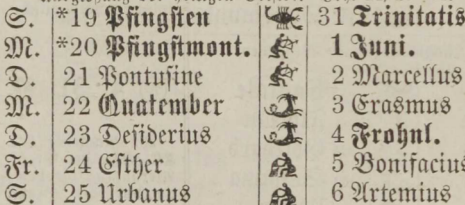 S. *19 Pfingsten 31 Trinitatis
M. *20 Pfingstmont. 1 Juni.
D. 21 Pontusine 2 Marcellus
M. 22 Quatember 3 Erasmus
D. 23 Desiderius 4 Frohnl.
Fr. 24 Esther 5 Bonifacius
S. 25 Urbanus 6 Artemius